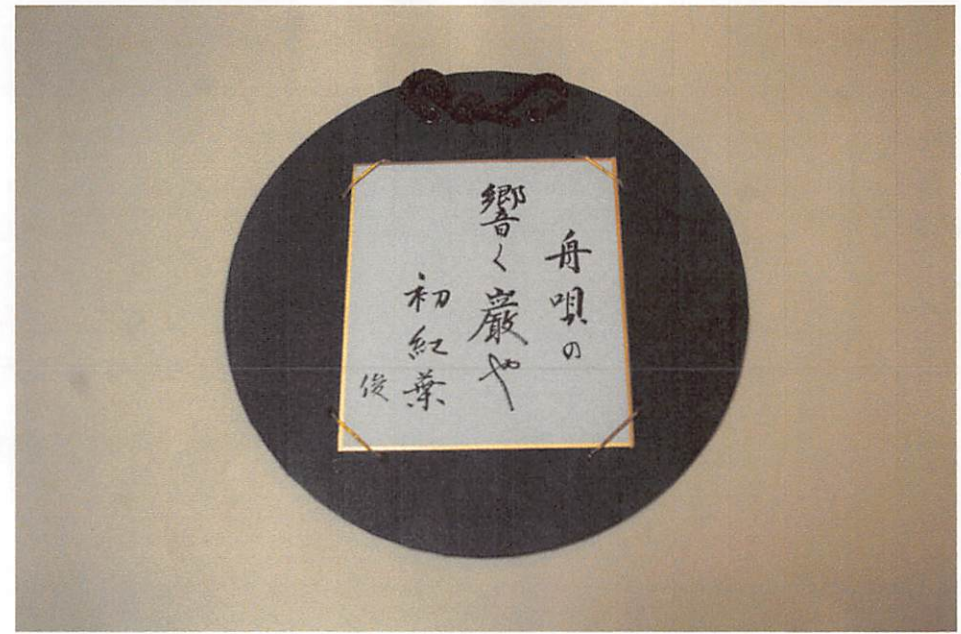 舟唄の
響く巌や
初紅葉
俊